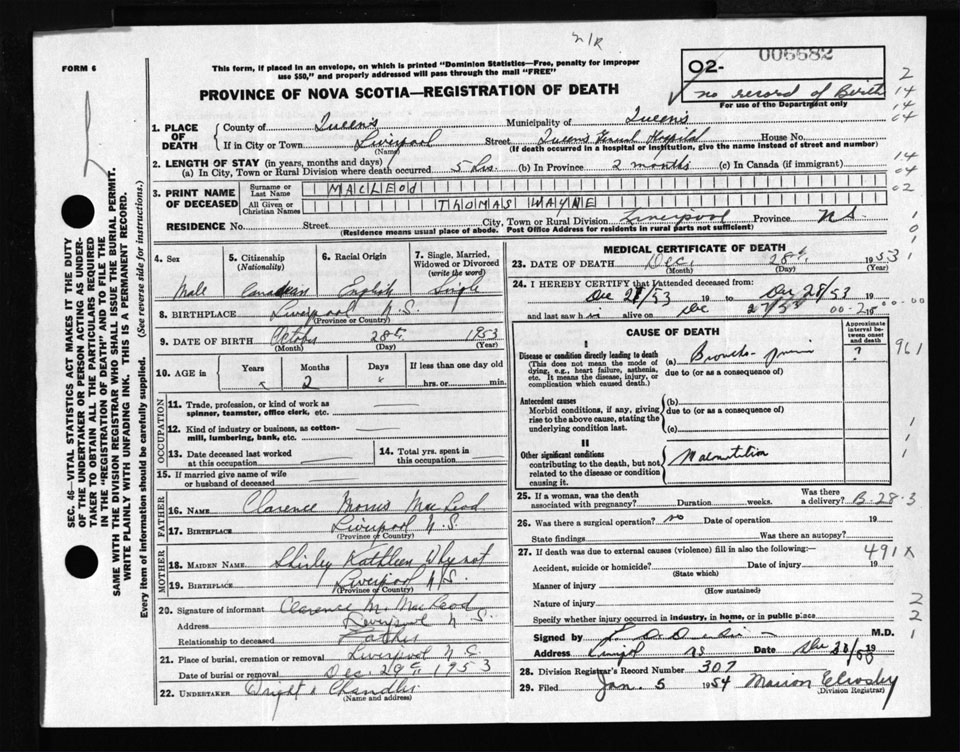 21R
FORM 6
This form, if placed in an envelope, on which is printed "Dominion Statistics—Free, penalty for improper
use $50," and properly addressed will pass through the mail "FREE"
PROVINCE OF NOVA SCOTIA—REGISTRATION OF DEATH
02- 006682
no record of Birth
For use of the Department only
2
14
14
04
14
04
02
1. PLACE OF DEATH
County of Queens Municipality of Queens
If in City or Town Liverpool Street Queens General Hospital House No.
(Name) (If death occurred in a hospital or institution, give the name instead of street and number)
2. LENGTH OF STAY (in years, months and days)
(a) In City, Town or Rural Division where death occurred 5 hrs. (b) In Province 2 months (c) In Canada (if immigrant)
3. PRINT NAME OF DECEASED
Surname or Last Name MACLEOD
All Given or Christian Names THOMAS WAYNE
RESIDENCE No. Street City, Town or Rural Division Liverpool Province N.S.
(Residence means usual place of abode. Post Office Address for residents in rural parts not sufficient)
4. Sex Male
5. Citizenship (Nationality) Canadian
6. Racial Origin English
7. Single, Married, Widowed or Divorced (write the word) Single
8. BIRTHPLACE Liverpool N.S.
(Province or Country)
9. DATE OF BIRTH October 28th 1953
(Month) (Day) (Year)
10. AGE in Years Months 2 Days If less than one day old
hrs. or min.
OCCUPATION
11. Trade, profession, or kind of work as spinner, teamster, office clerk, etc.
12. Kind of industry or business, as cotton-mill, lumbering, bank, etc.
13. Date deceased last worked at this occupation
14. Total yrs. spent in this occupation
15. If married give name of wife or husband of deceased
FATHER
16. NAME Clarence Morris MacLeod
17. BIRTHPLACE Liverpool N.S.
(Province or Country)
MOTHER
18. MAIDEN NAME Shirley Kathleen Whynot
19. BIRTHPLACE Liverpool N.S.
(Province or Country)
20. Signature of informant Clarence M. MacLeod
Address Liverpool N.S.
Relationship to deceased Father
21. Place of burial, cremation or removal Liverpool N.S.
Date of burial or removal Dec. 29th 1953
22. UNDERTAKER Wright & Chandler
(Name and address)
MEDICAL CERTIFICATE OF DEATH
23. DATE OF DEATH Dec. 28th 1953
(Month) (Day) (Year)
24. I HEREBY CERTIFY that I attended deceased from:
Dec 28/53 19 to Dec 28/53 19
and last saw h alive on Dec 27/53 19
CAUSE OF DEATH
Approximate interval between onset and death
I
Disease or condition directly leading to death
(This does not mean the mode of dying, e.g., heart failure, asthenia, etc. It means the disease, injury, or complication which caused death.)
(a) ?
due to (or as a consequence of)
961
Antecedent causes
Morbid conditions, if any, giving rise to the above cause, stating the underlying condition last.
(b)
due to (or as a consequence of)
(c)
II
Other significant conditions
contributing to the death, but not related to the disease or condition causing it.
Malnutrition
25. If a woman, was the death associated with pregnancy? Duration weeks. Was there a delivery?
B-28-3
26. Was there a surgical operation? no Date of operation 19
State findings Was there an autopsy?
27. If death was due to external causes (violence) fill in also the following:—
491 X
Accident, suicide or homicide? Date of injury 19
(State which)
Manner of injury
(How sustained)
Nature of injury
Specify whether injury occurred in industry, in home, or in public place
Signed by M.D.
Address N.S. Date Dec 28/53 19
28. Division Registrar's Record Number 307
29. Filed Jan. 5 1954 Marion E Crosby
(Division Registrar)
SEC. 46—VITAL STATISTICS ACT MAKES IT THE DUTY
OF THE UNDERTAKER OR PERSON ACTING AS UNDER-
TAKER TO OBTAIN ALL THE PARTICULARS REQUIRED
IN THE "REGISTRATION OF DEATH" AND TO FILE THE
SAME WITH THE DIVISION REGISTRAR WHO SHALL ISSUE THE BURIAL PERMIT.
WRITE PLAINLY WITH UNFADING INK. THIS IS A PERMANENT RECORD.
Every item of information should be carefully supplied. (See reverse side for instructions.)